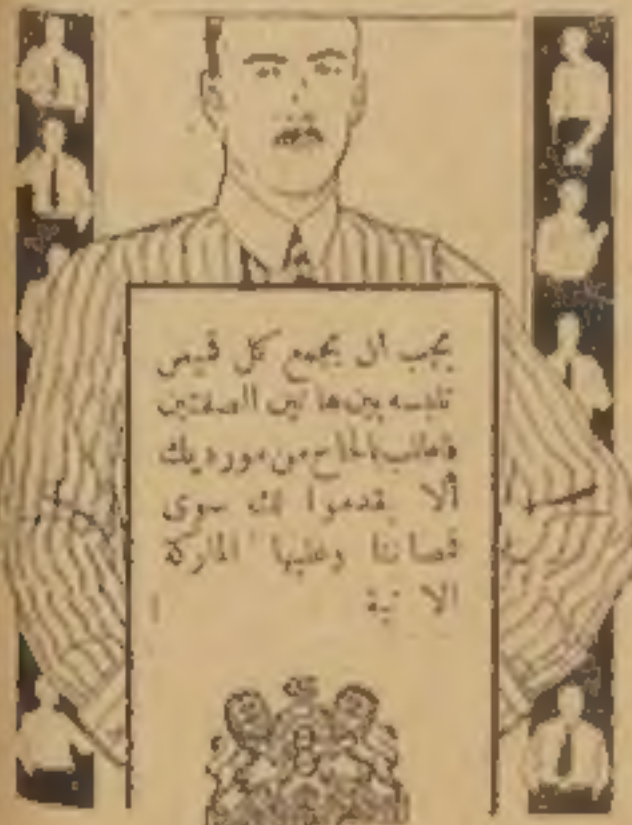 يجب ان يجمع كل قميص
تلبسه بين هاتين الصفتين
فاطلب بالحاح من مورديك
ألا يقدموا لك سوى
قمصاننا وعليها الماركة
الآتية